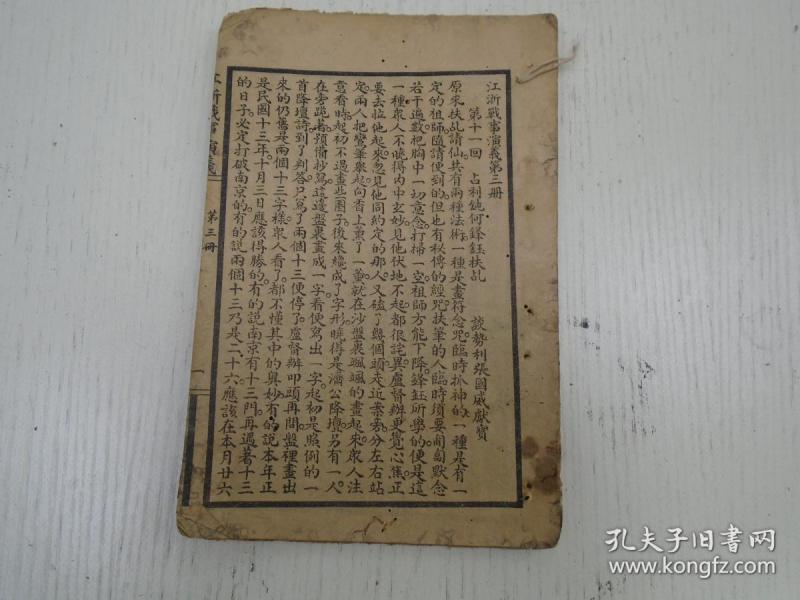 江浙戰事演義第三册
第十一回 占利鈍何鋒鈺扶乩 談勢利張國威獻寶
原來扶乩請仙共有兩種法術一種是畫符念咒臨時抓神的一種是有一
定的祖師隨請便到的但也有秘傳的經咒扶筆的人臨時須要匍匐默念
若干遍數把胸中一切意念打掃一空祖師方能下降鋒鈺所學的便是這
一種衆人不曉得內中玄妙見他伏地不起都很詫異盧督辦更覺心焦正
要去拉他起來忽見他同約定的那人又磕了幾個頭走近案前分左右站
定兩人把鸞筆舉起向香上薰了一薰就在沙盤裏颯颯的畫起來衆人注
意看時起初不過畫些圈子後來纔成了字形曉得是濟公降壇另有一人
在旁跪著預備抄寫這邊盤裏畫成一字看便寫出一字起初是照例的一
首降壇詩到了判答只寫了兩個十三便停了盧督辦叩頭再問盤裡畫出
來的仍舊是兩個十三字樣衆人看了都不懂其中的奧妙有的說本年正
是民國十三年十月三日應該得勝的有的說南京有十三門再過著十三
的日子必定打破南京的有的說兩個十三乃是二十六應該在本月廿六
江浙戰事演義
第三冊
一
孔夫子旧书网
www.kongfz.com